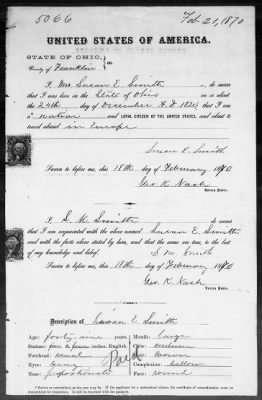 5066
Feb 21, 1870
UNITED STATES OF AMERICA.
STATE OF OHIO,
County of Franklin
I, Mrs Susan E. Smith do swear
that I was born in the State of Ohio on or about
the 24th day of November A.D. 1820 that I am
a native and LOYAL CITIZEN OF THE UNITED STATES, and about to
travel abroad in Europe
Susan E Smith
Sworn to before me, this 18th day of February 1870
Geo. K. Nash
Notary Public.
I, S. M. Smith do swear
that I am acquainted with the above named Susan E. Smith
and with the facts above stated by her, and that the same are true, to the best
of my knowledge and belief. S. M. Smith
Sworn to before me, this 18th day of February 1870
Geo. K. Nash
Notary Public.
Description of Susan E. Smith
Age: forty-nine years Mouth: large
Stature: feet inches, English. Chin: medium
Forehead: usual Hair: brown
Eyes: gray Complexion: sallow
Nose: proportionate Face: round
Paid